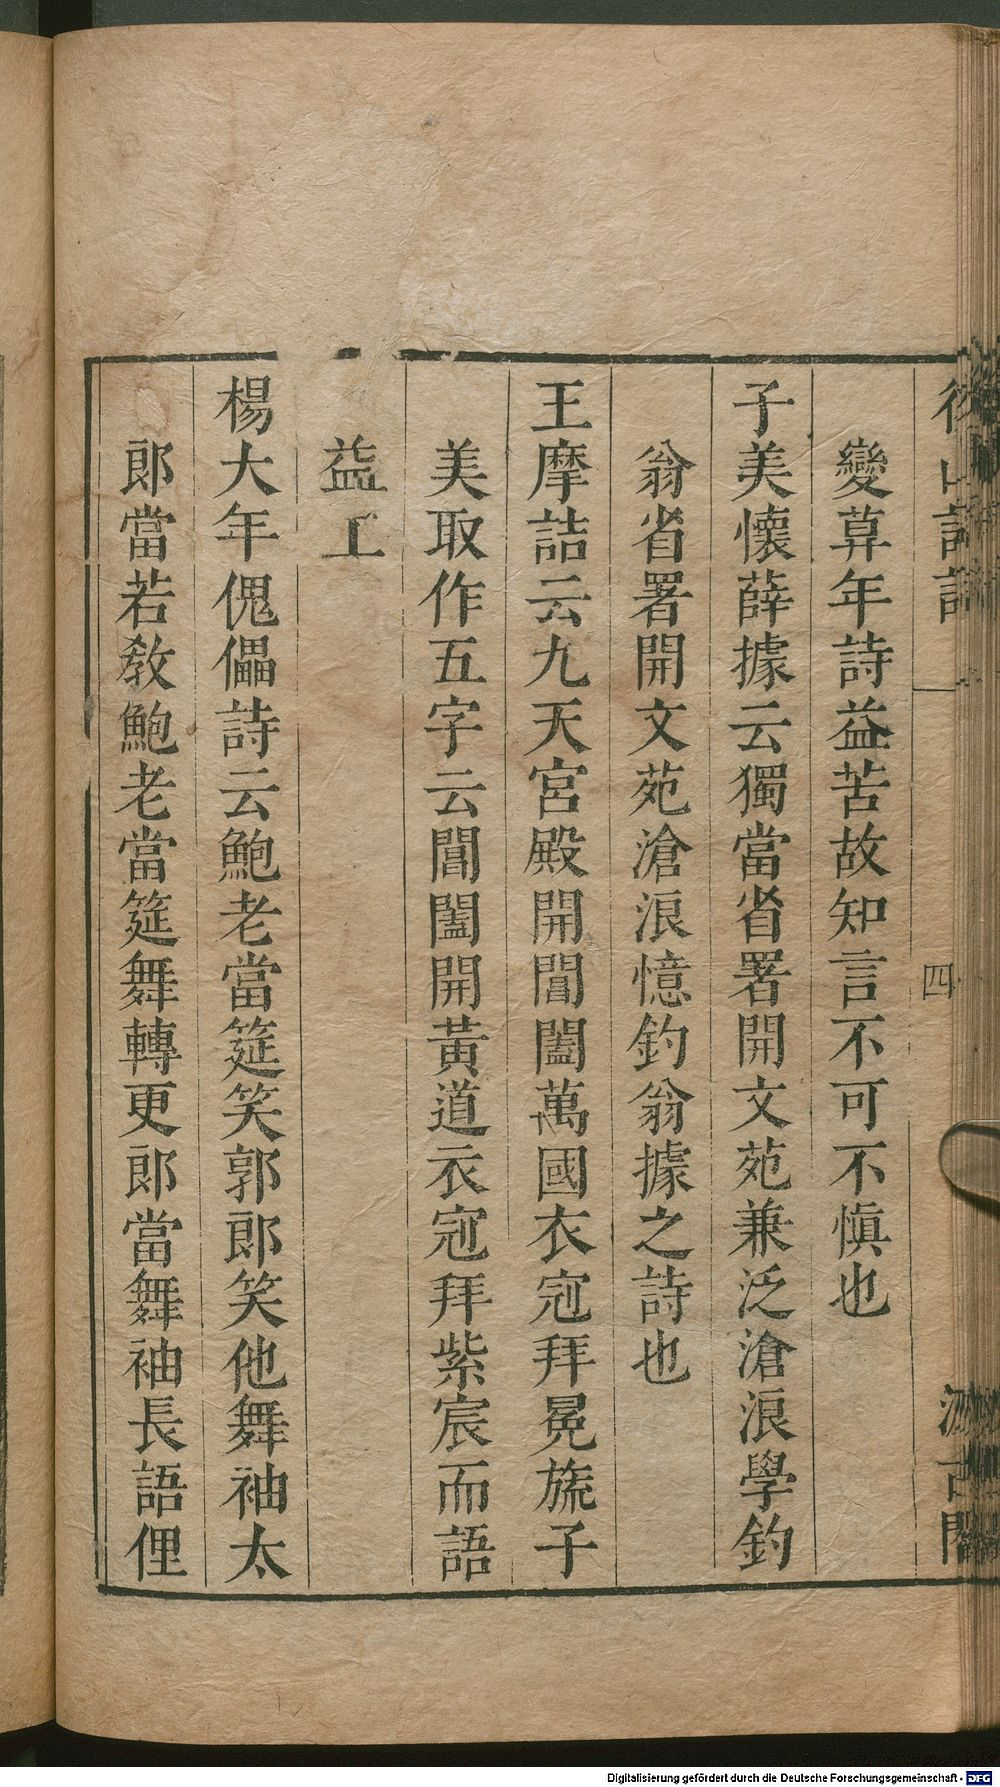 後山詩話
四
汲古閣
變暮年詩益苦故知言不可不愼也
子美懷薛據云獨當省署開文苑兼泛滄浪學釣
翁省署開文苑滄浪憶釣翁據之詩也
王摩詰云九天宮殿開閶闔萬國衣冠拜冕旒子
美取作五字云閶闔開黃道衣冠拜紫宸而語
益工
楊大年傀儡詩云鮑老當筵笑郭郎笑他舞袖太
郎當若教鮑老當筵舞轉更郎當舞袖長語俚
Digitalisierung gefördert durch die Deutsche Forschungsgemeinschaft - DFG